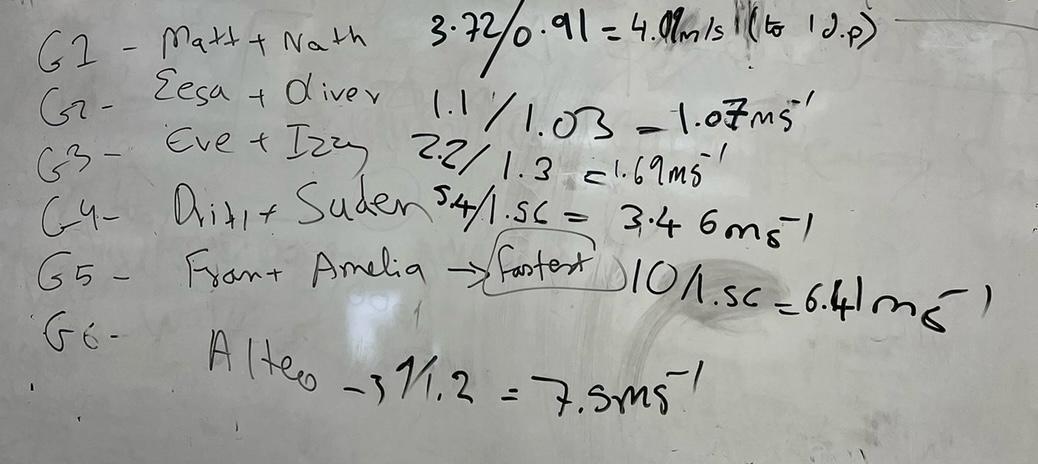 G1 - Matt + Nath 3.72/0.91 = 4.09m/s (to 1d.p)
G2 - Eesa + Oliver 1.1/1.03 = 1.07ms⁻¹
G3 - Eve + Izzy 2.2/1.3 = 1.69ms⁻¹
G4 - Diti + Suden 5.4/1.56 = 3.46ms⁻¹
G5 - Fran + Amelia → fastest 10/1.56 = 6.41ms⁻¹
G6 -
9/1.2 = 7.5ms⁻¹